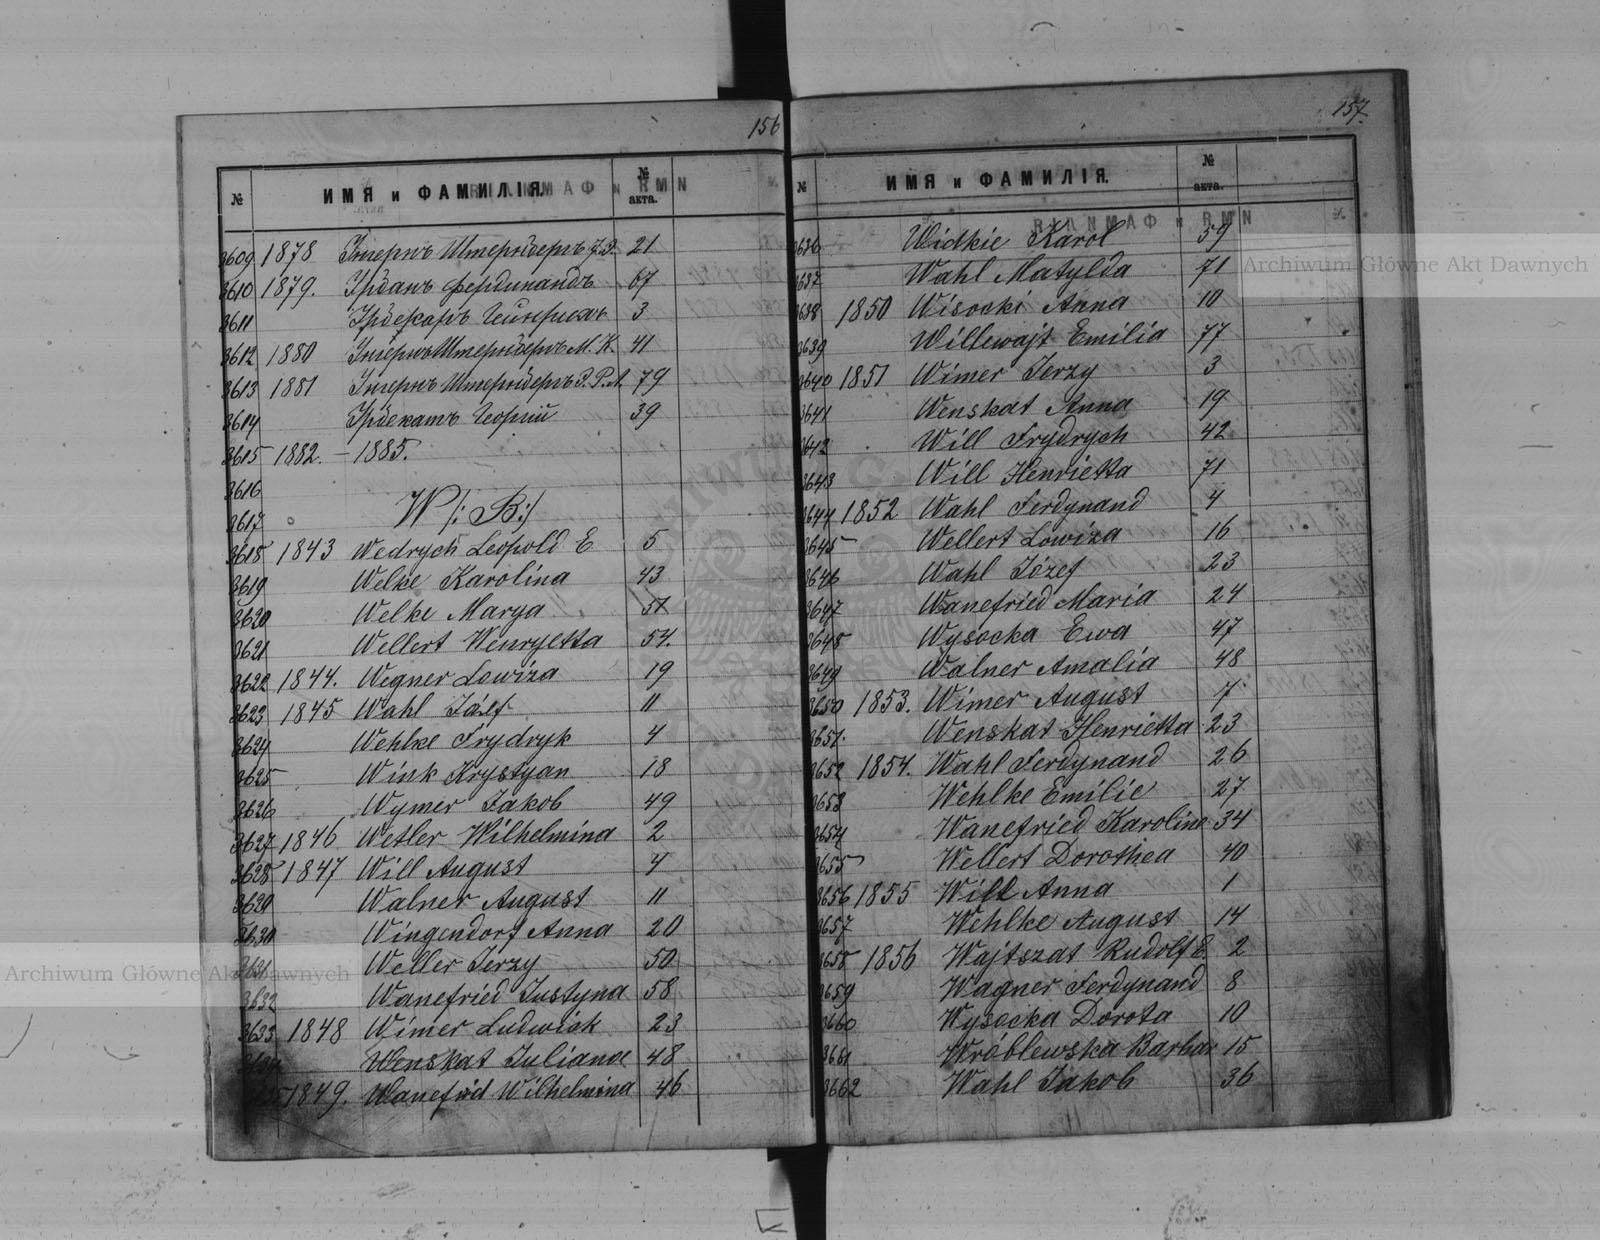 156
№ ИМЯ и ФАМИЛІЯ. № акта.
3609 1878 21
3610 1879. Урбанъ Фердинандъ 67
3611 Гейнрихъ 3
3612 1880 41
3613 1881 79
3614 Георгій 39
3615 1882. – 1885.
3616
3617 W /: B :/
3618 1843 Wedrych Leopold E 5
3619 Welke Karolina 43
3620 Welke Marya 51
3621 Wellert Henryetta 54.
3622 1844. Wegner Lowiza 19
3623 1845 Wahl Józef 11
3624 Wehlke Frydryk 4
3625 Wink Krystyan 18
3626 Wymer Jakob 49
3627 1846 Wetler Wilhelmina 2
3628 1847 Will August 4
3629 Walner August 11
3630 Wingendorf Anna 20
3631 Weller Jerzy 50
3632 Wanefried Justyna 58
3633 1848 Wimer Ludwick 23
3634 Wenskat Juliana 48
1849. Wilhelmina 46
157.
№ ИМЯ и ФАМИЛІЯ. № акта.
3636 Widkie Karol 59
3637 Wahl Matylda 71
3638 1850 Wisocki Anna 10
3639 Willewajt Emilia 77
3640 1851 Wimer Jerzy 3
3641 Wenskat Anna 19
3642 Will Frydrych 42
3643 Will Henrietta 71
3644 1852 Wahl Ferdynand 4
3645 Wellert Lowiza 16
3646 Wahl Józef 23
3647 Wanefried Maria 24
3648 Wysocka Ewa 47
3649 Walner Amalia 48
3650 1853. Wimer August 7
3651. Wenskat Henrietta 23
3652 1854. Wahl Ferdynand 26
3653 Wehlke Emilie 27
3654 Wanefried Karoline 34
3655 Wellert Dorothea 40
3656 1855 Will Anna 1
3657 Wehlke August 14
3658 1856 Wajtszat Rudolf E. 2
3659 Wagner Ferdynand 8
3660 Wysocka Dorota 10
3661 Wróblewska Barbar 15
3662 Wahl Jakob 36
Archiwum Główne Akt Dawnych
Archiwum Główne Akt Dawnych